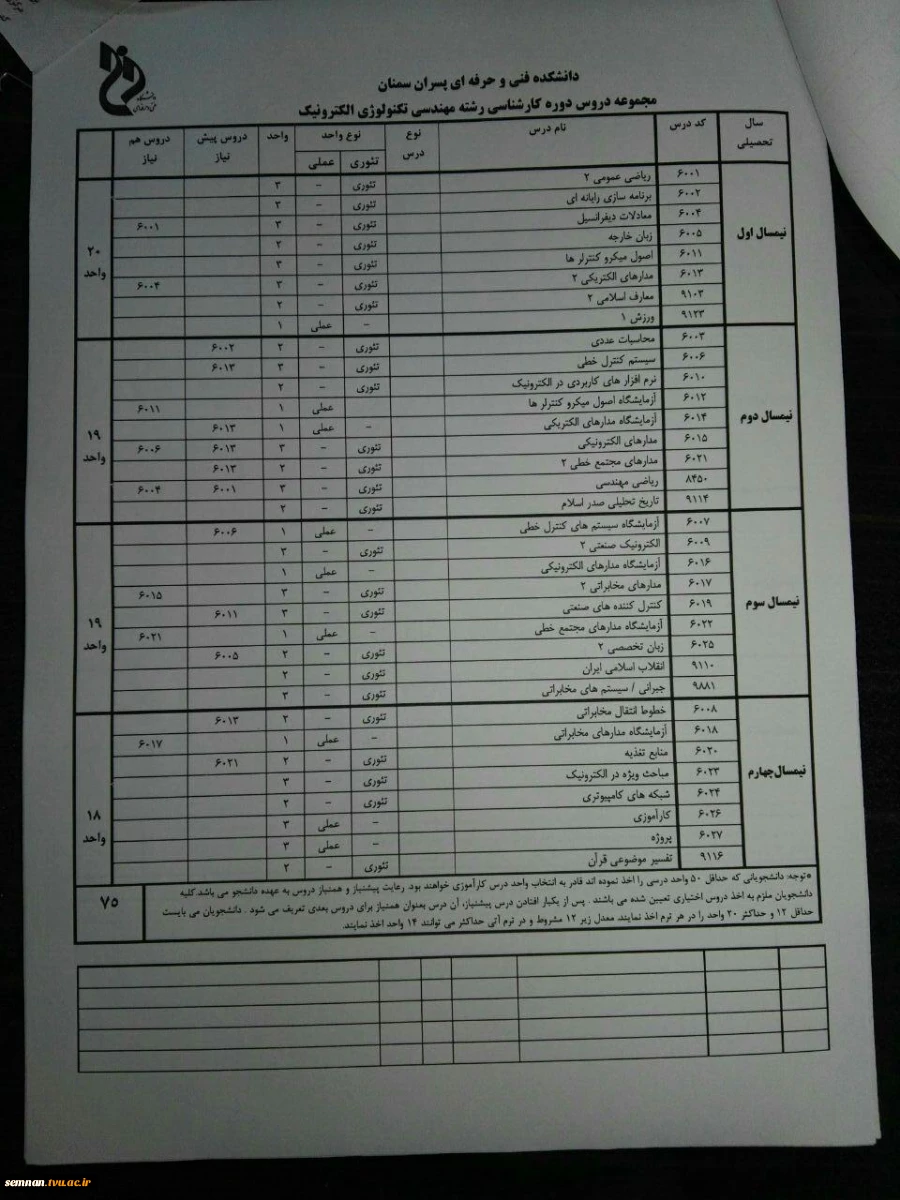 دانشگاه
فنی و حرفه ای
دانشکده فنی و حرفه ای پسران سمنان
مجموعه دروس دوره کارشناسی رشته مهندسی تکنولوژی الکترونیک
سال تحصیلی کد درس نام درس نوع درس نوع واحد واحد دروس پیش نیاز دروس هم نیاز
تئوری عملی
نیمسال اول
۶۰۰۱ ریاضی عمومی ۲ تئوری - ۳
۶۰۰۲ برنامه سازی رایانه ای تئوری - ۳
۶۰۰۴ معادلات دیفرانسیل تئوری - ۳ ۶۰۰۱
۶۰۰۵ زبان خارجه تئوری - ۲
۶۰۱۱ اصول میکرو کنترلر ها تئوری - ۳
۶۰۱۳ مدارهای الکتریکی ۲ تئوری - ۳ ۶۰۰۴
۹۱۰۳ معارف اسلامی ۲ تئوری - ۲
۹۱۲۳ ورزش ۱ - عملی ۱
۲۰ واحد
نیمسال دوم
۶۰۰۳ محاسبات عددی تئوری - ۲ ۶۰۰۲
۶۰۰۶ سیستم کنترل خطی تئوری - ۳ ۶۰۱۳
۶۰۱۰ نرم افزار های کاربردی در الکترونیک تئوری - ۲
۶۰۱۲ آزمایشگاه اصول میکرو کنترلر ها عملی ۱ ۶۰۱۱
۶۰۱۴ آزمایشگاه مدارهای الکتریکی - عملی ۱ ۶۰۱۳
۶۰۱۵ مدارهای الکترونیکی تئوری - ۳ ۶۰۱۳ ۶۰۰۶
۶۰۲۱ مدارهای مجتمع خطی ۲ تئوری - ۲ ۶۰۱۳
۸۴۵۰ ریاضی مهندسی تئوری - ۳ ۶۰۰۱ ۶۰۰۴
۹۱۱۴ تاریخ تحلیلی صدر اسلام تئوری - ۲
۱۹ واحد
نیمسال سوم
۶۰۰۷ آزمایشگاه سیستم های کنترل خطی - عملی ۱ ۶۰۰۶
۶۰۰۹ الکترونیک صنعتی ۲ تئوری - ۳
۶۰۱۶ آزمایشگاه مدارهای الکترونیکی - عملی ۱
۶۰۱۷ مدارهای مخابراتی ۲ تئوری - ۳ ۶۰۱۵
۶۰۱۹ کنترل کننده های صنعتی تئوری - ۳ ۶۰۱۱
۶۰۲۲ آزمایشگاه مدارهای مجتمع خطی - عملی ۱ ۶۰۲۱
۶۰۲۵ زبان تخصصی ۲ تئوری - ۲ ۶۰۰۵
۹۱۱۰ انقلاب اسلامی ایران تئوری - ۲
۹۸۸۱ جبرانی / سیستم های مخابراتی تئوری - ۳
۱۹ واحد
نیمسال چهارم
۶۰۰۸ خطوط انتقال مخابراتی تئوری - ۲ ۶۰۱۳
۶۰۱۸ آزمایشگاه مدارهای مخابراتی - عملی ۱ ۶۰۱۷
۶۰۲۰ منابع تغذیه تئوری - ۲ ۶۰۲۱
۶۰۲۳ مباحث ویژه در الکترونیک تئوری - ۳
۶۰۲۴ شبکه های کامپیوتری تئوری - ۲
۶۰۲۶ کارآموزی - عملی ۳
۶۰۲۷ پروژه - عملی ۳
۹۱۱۶ تفسیر موضوعی قرآن تئوری - ۲
۱۸ واحد
*توجه: دانشجویانی که حداقل ۵۰ واحد درسی را اخذ نموده اند قادر به انتخاب واحد درس کارآموزی خواهند بود. رعایت پیشنیاز و همنیاز دروس به عهده دانشجو می باشد. کلیه
دانشجویان ملزم به اخذ دروس اختیاری تعیین شده می باشند . پس از یکبار افتادن درس پیشنیاز، آن درس بعنوان همنیاز برای دروس بعدی تعریف می شود . دانشجویان می بایست
حداقل ۱۲ و حداکثر ۲۰ واحد را در هر ترم اخذ نمایند. معدل زیر ۱۲ مشروط و در ترم آتی حداکثر می توانند ۱۴ واحد اخذ نمایند.
۷۵
semnan.tvu.ac.ir